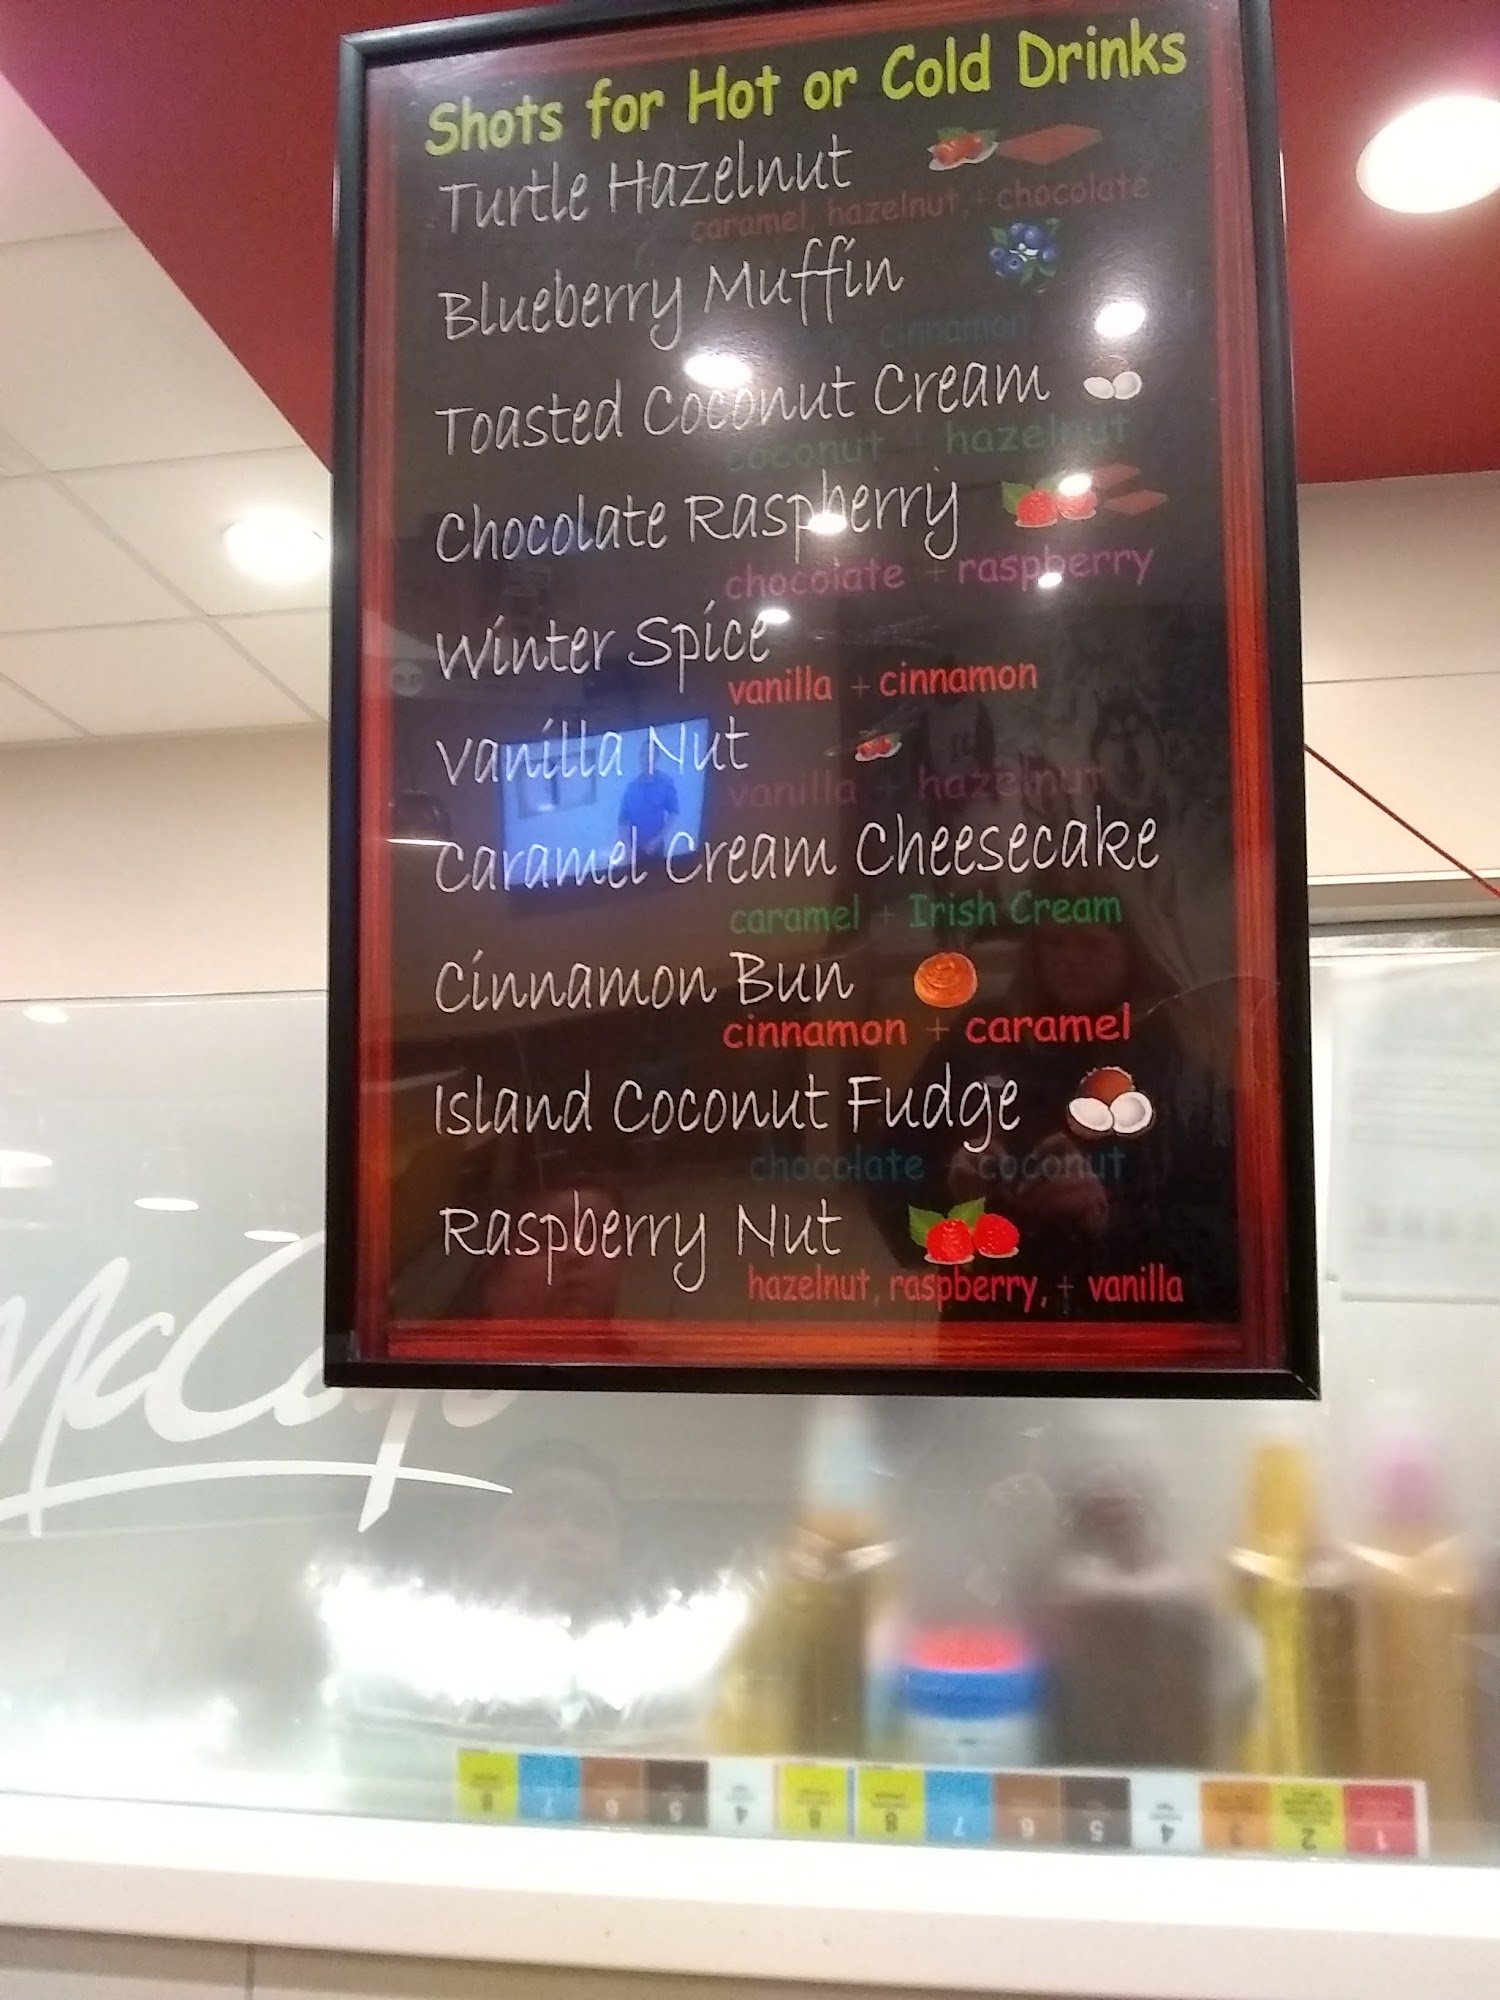 Shots for Hot or Cold Drinks
Turtle Hazelnut
caramel, hazelnut, + chocolate
Blueberry Muffin
cinnamon
Toasted Coconut Cream
coconut + hazelnut
Chocolate Raspberry
chocolate + raspberry
Winter Spice
vanilla + cinnamon
Vanilla Nut
vanilla + hazelnut
Caramel Cream Cheesecake
caramel + Irish Cream
Cinnamon Bun
cinnamon + caramel
Island Coconut Fudge
chocolate + coconut
Raspberry Nut
hazelnut, raspberry, + vanilla
8 7 6 5 4 8 8 7 6 5 4 3 2 1